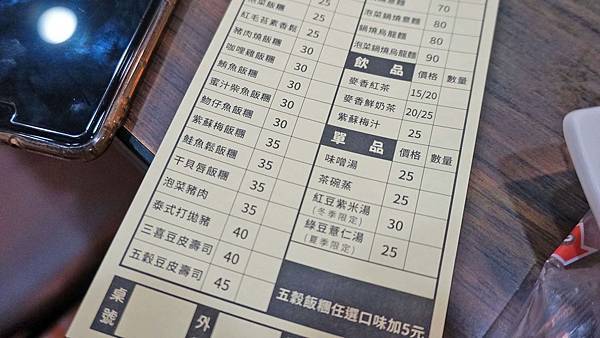 25
紅毛苔素香鬆 25
豬肉燒飯糰 30
咖哩雞飯糰 30
鮪魚飯糰 30
蜜汁柴魚飯糰 30
吻仔魚飯糰 30
紫蘇梅飯糰 30
鮭魚鬆飯糰 35
干貝唇飯糰 35
泡菜豬肉 35
泰式打拋豬 40
三喜豆皮壽司 40
五穀豆皮壽司 45
70
泡菜鍋燒意麵 80
鍋燒烏龍麵 80
泡菜鍋燒烏龍麵 90
飲品 價格 數量
麥香紅茶 15/20
麥香鮮奶茶 20/25
紫蘇梅汁 25
單品 價格 數量
味噌湯 25
茶碗蒸 25
紅豆紫米湯 30
(冬季限定)
綠豆薏仁湯 25
(夏季限定)
五穀飯糰任選口味加5元
桌號
外